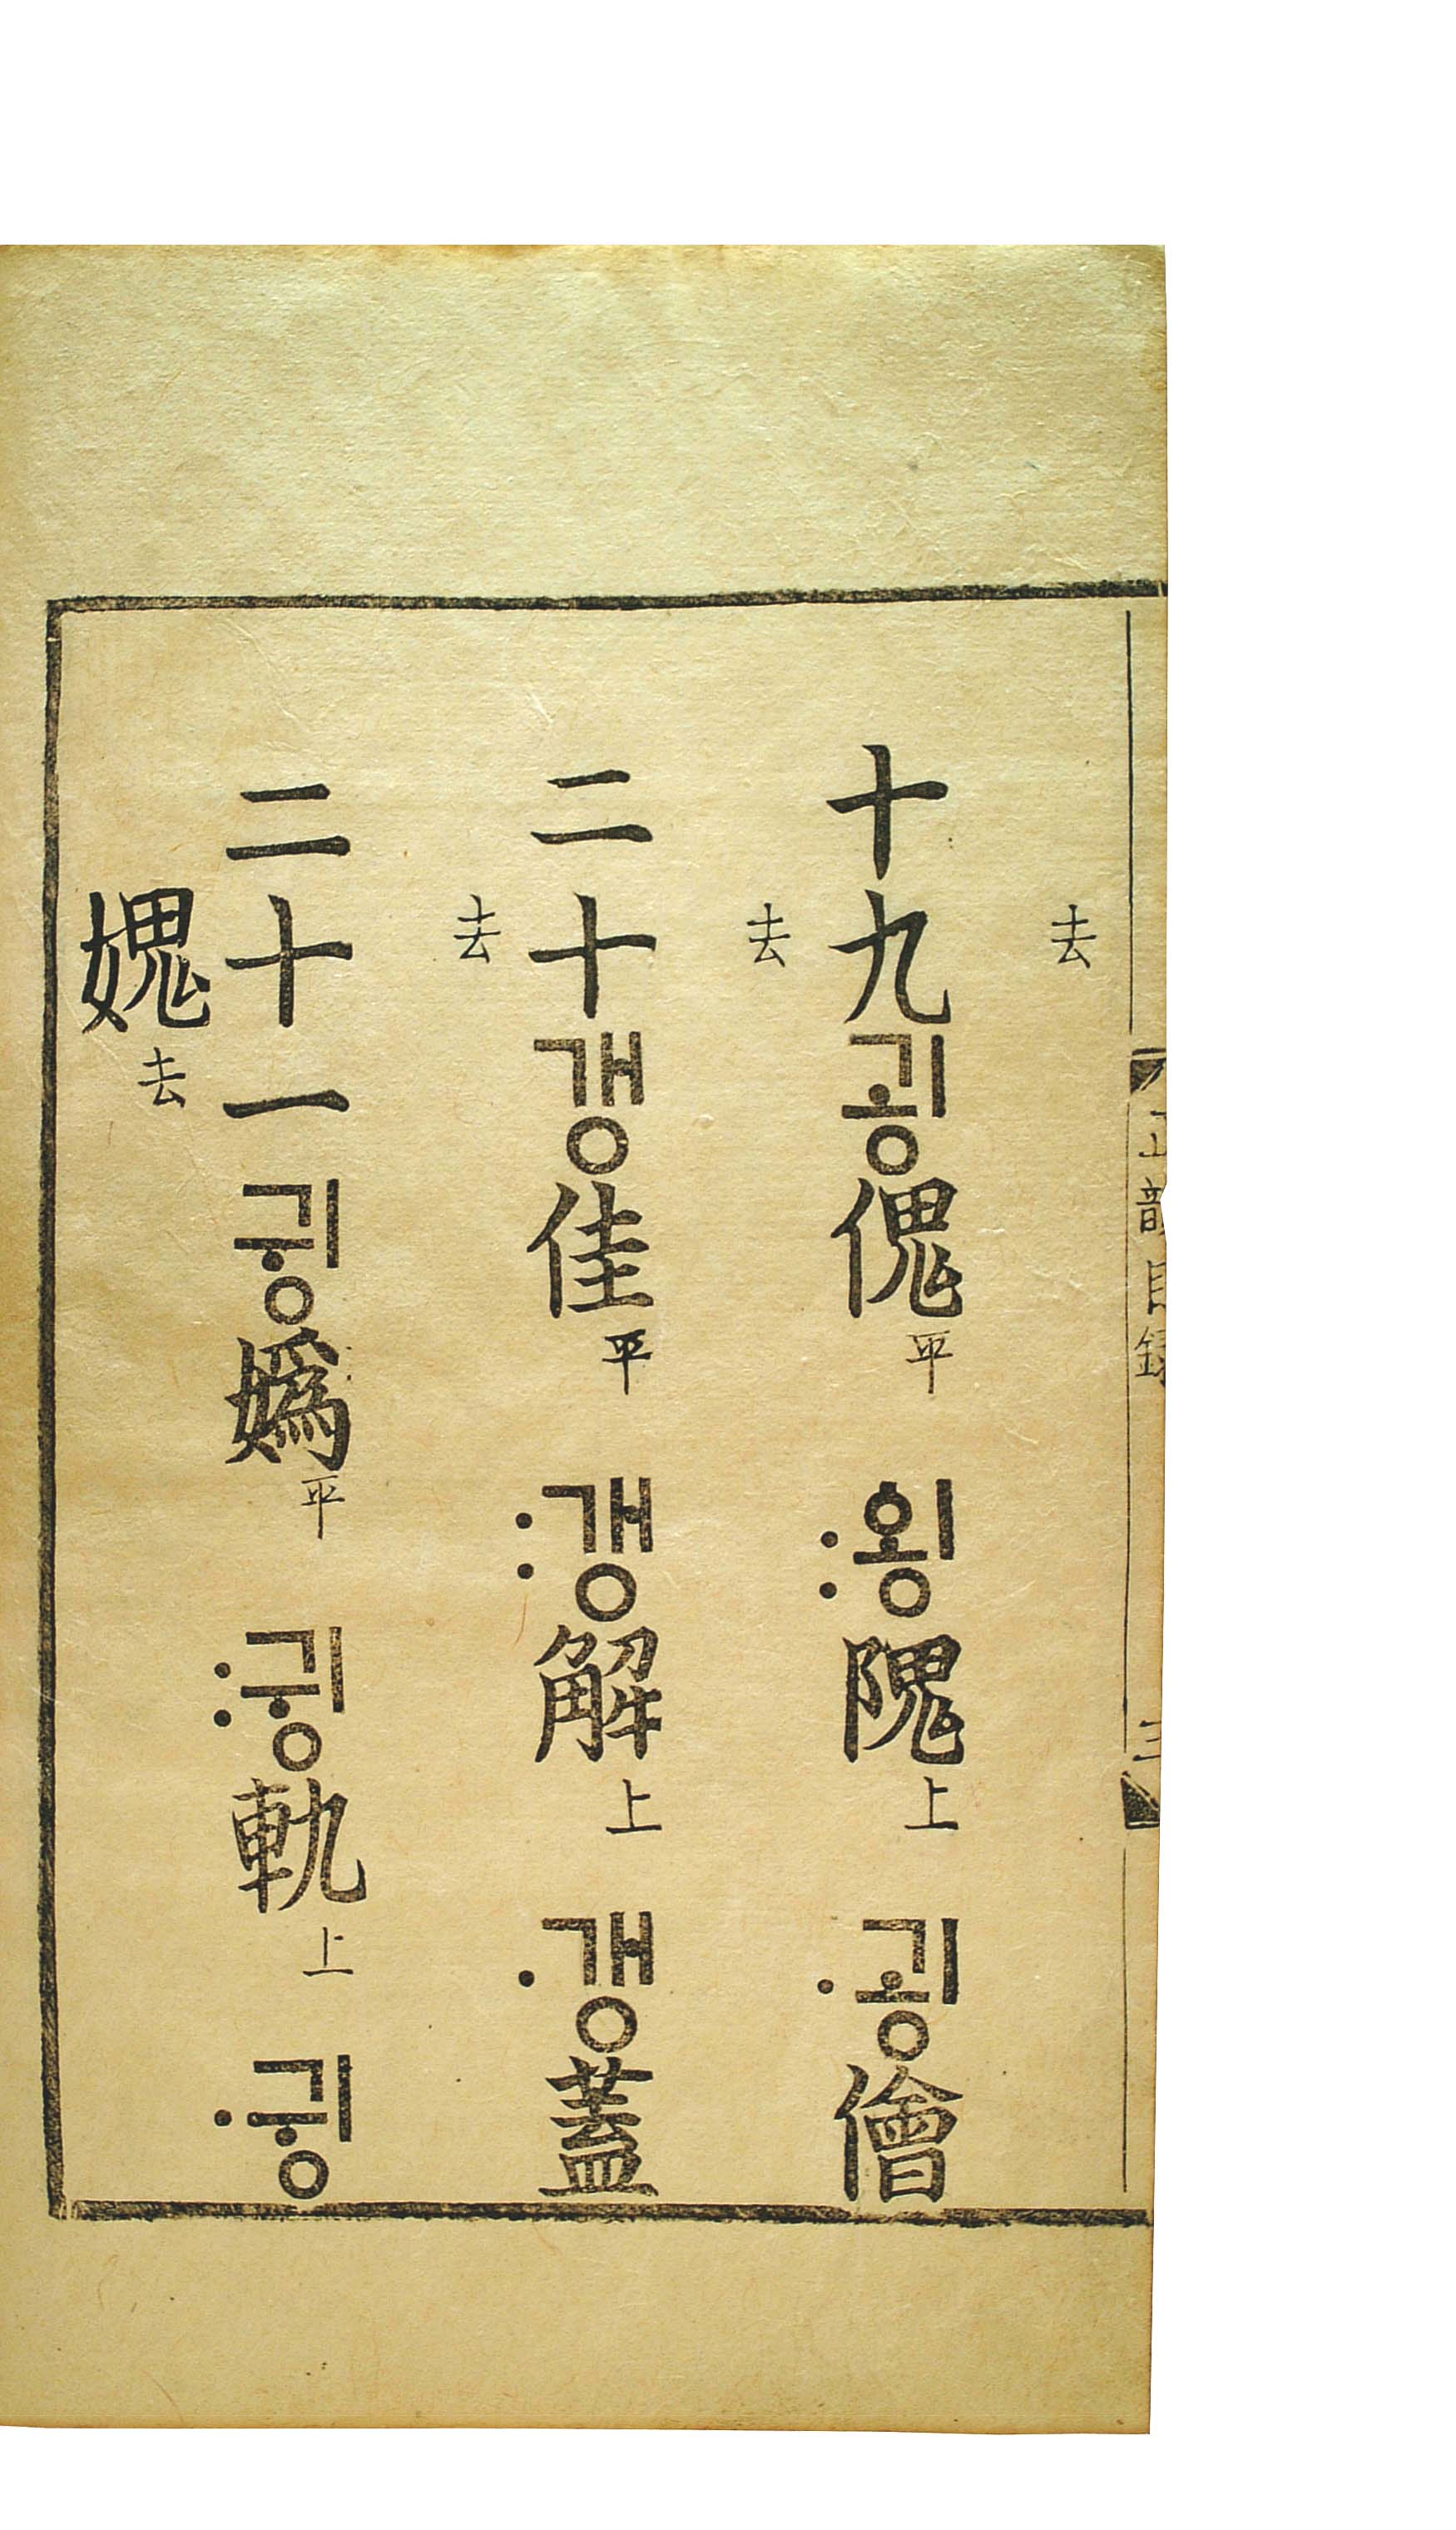 正韻目錄 三
去
十九굉傀平 ᅌᅬᆼ〯隗上 굉〮儈
去
二十갱佳平 갱〯解上 갱〮蓋
去
二十一귕嬀平 귕〯軌上 귕〮
媿去